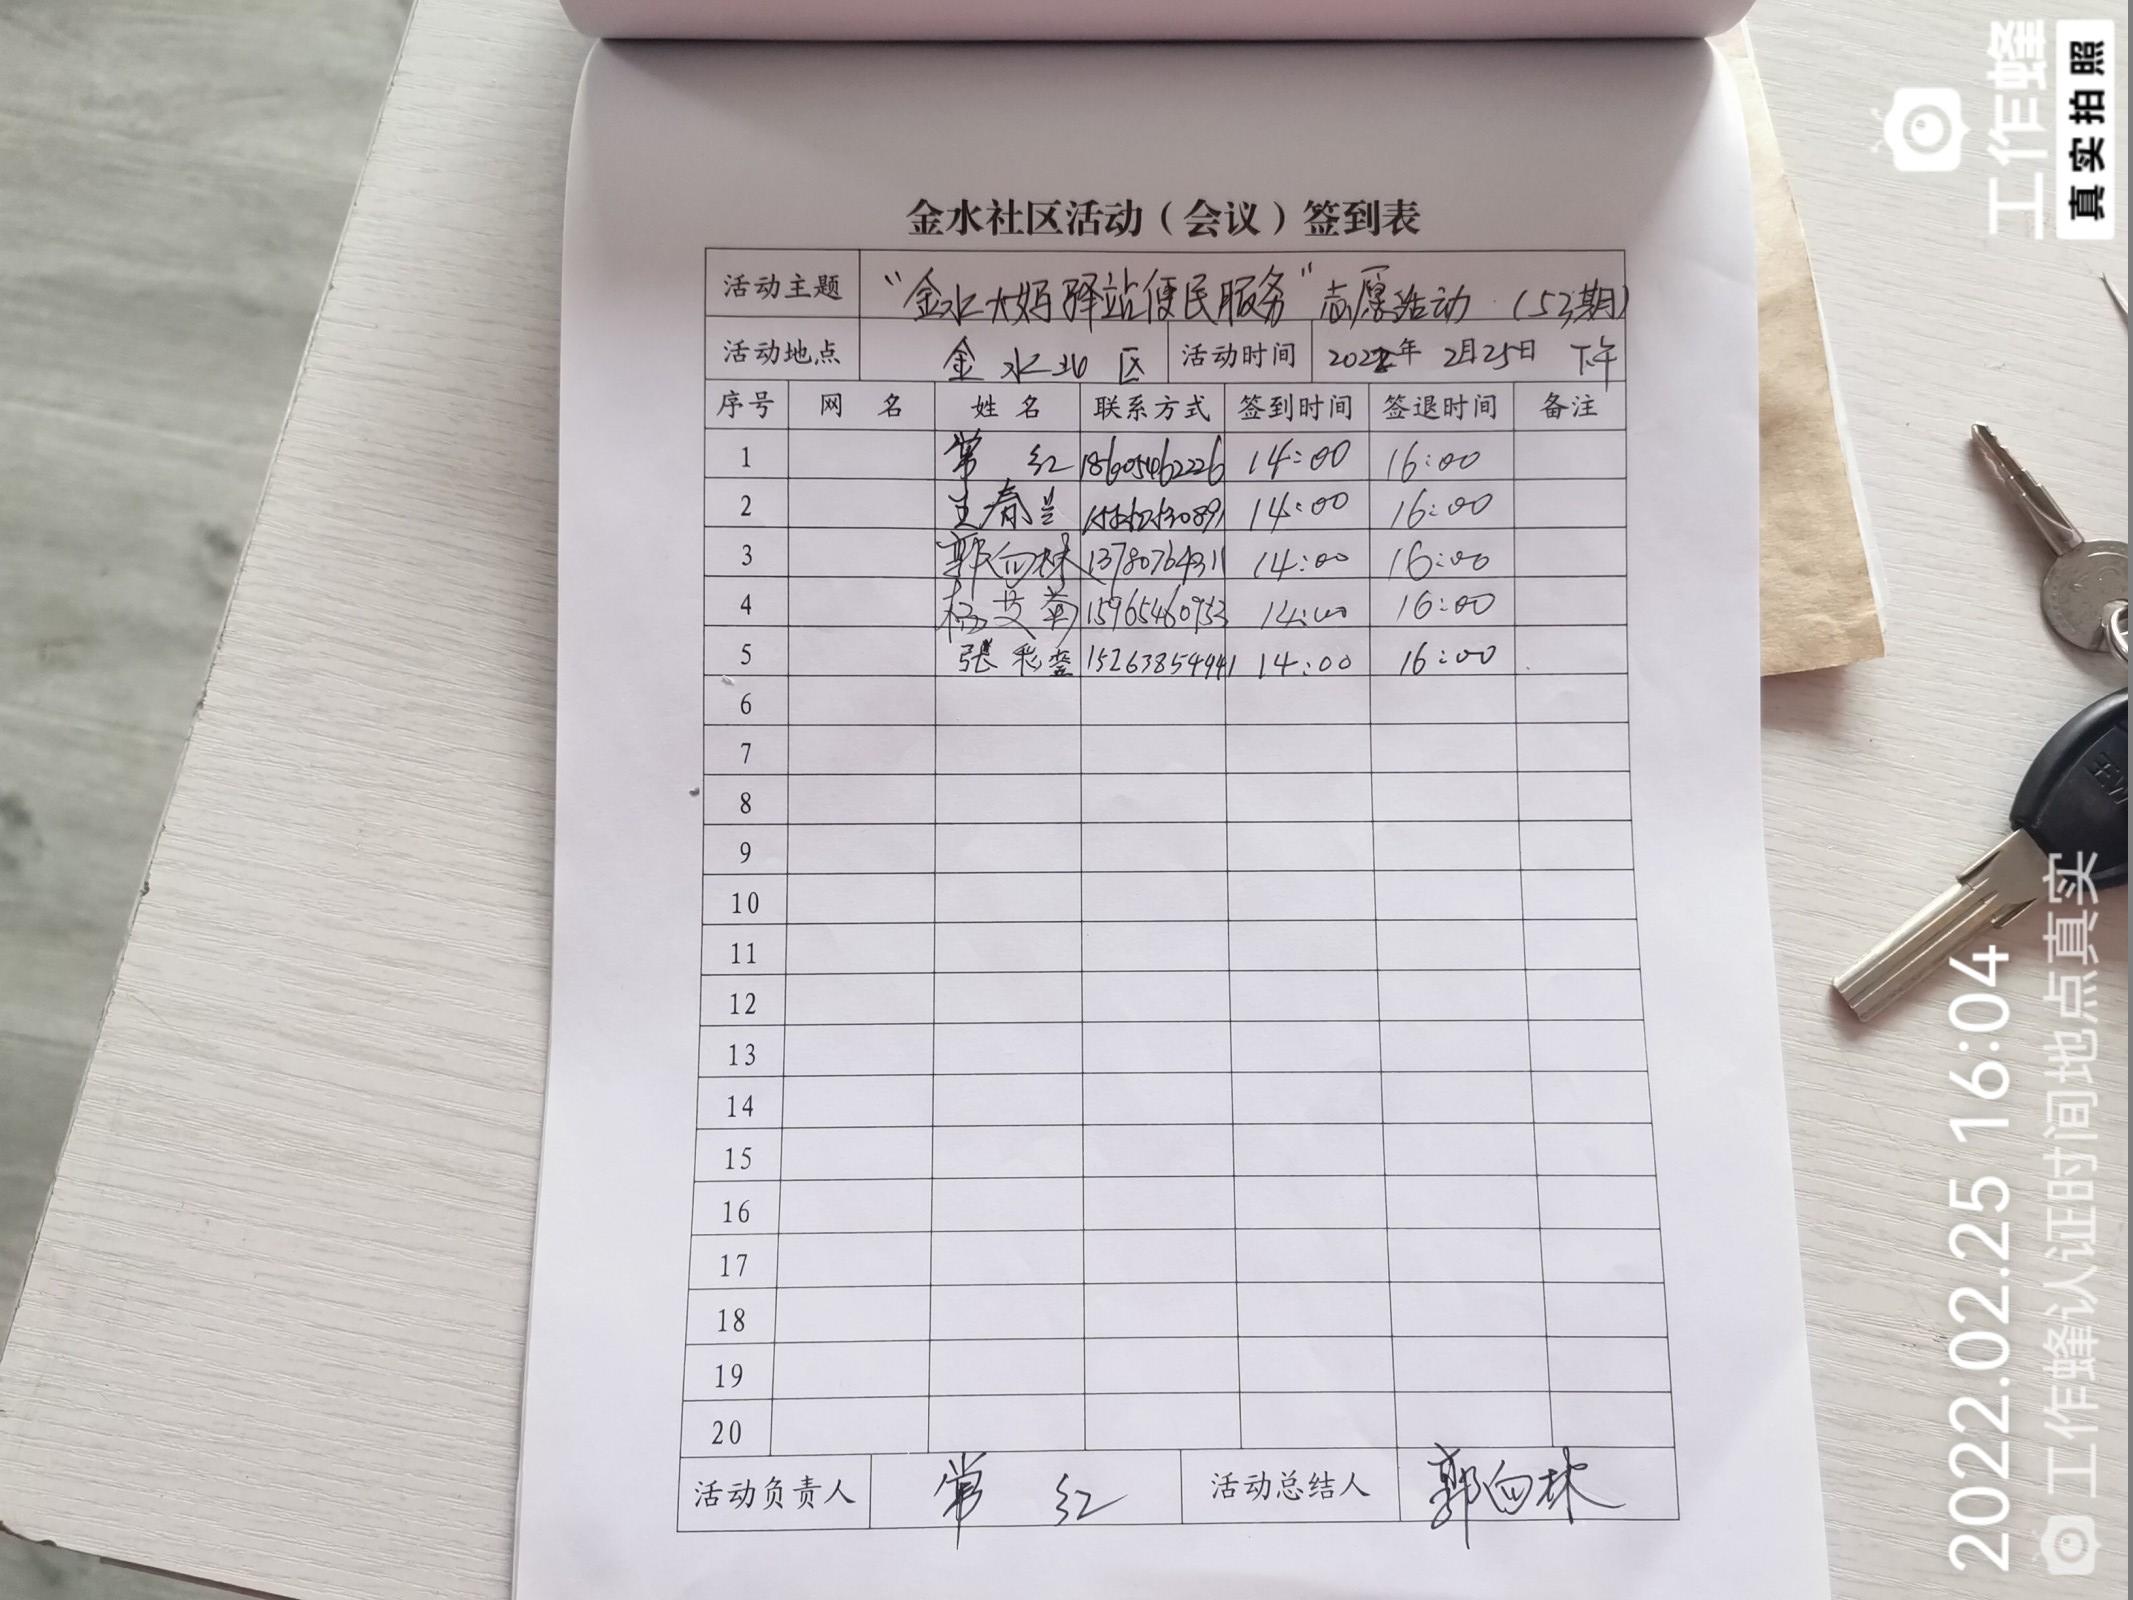 金水社区活动（会议）签到表
活动主题 “金水大妈驿站便民服务”志愿活动（53期）
活动地点 金水北区 活动时间 2022年2月25日 下午
序号 网名 姓名 联系方式 签到时间 签退时间 备注
1 常红 18605462226 14:00 16:00
2 王春兰 14:00 16:00
3 郭向林 13780764311 14:00 16:00
4 15965460953 14:00 16:00
5 張彩 15263854941 14:00 16:00
6
7
8
9
10
11
12
13
14
15
16
17
18
19
20
活动负责人 常红 活动总结人 郭向林
工作蜂
真实拍照
2022.02.25 16:04
工作蜂认证时间地点真实